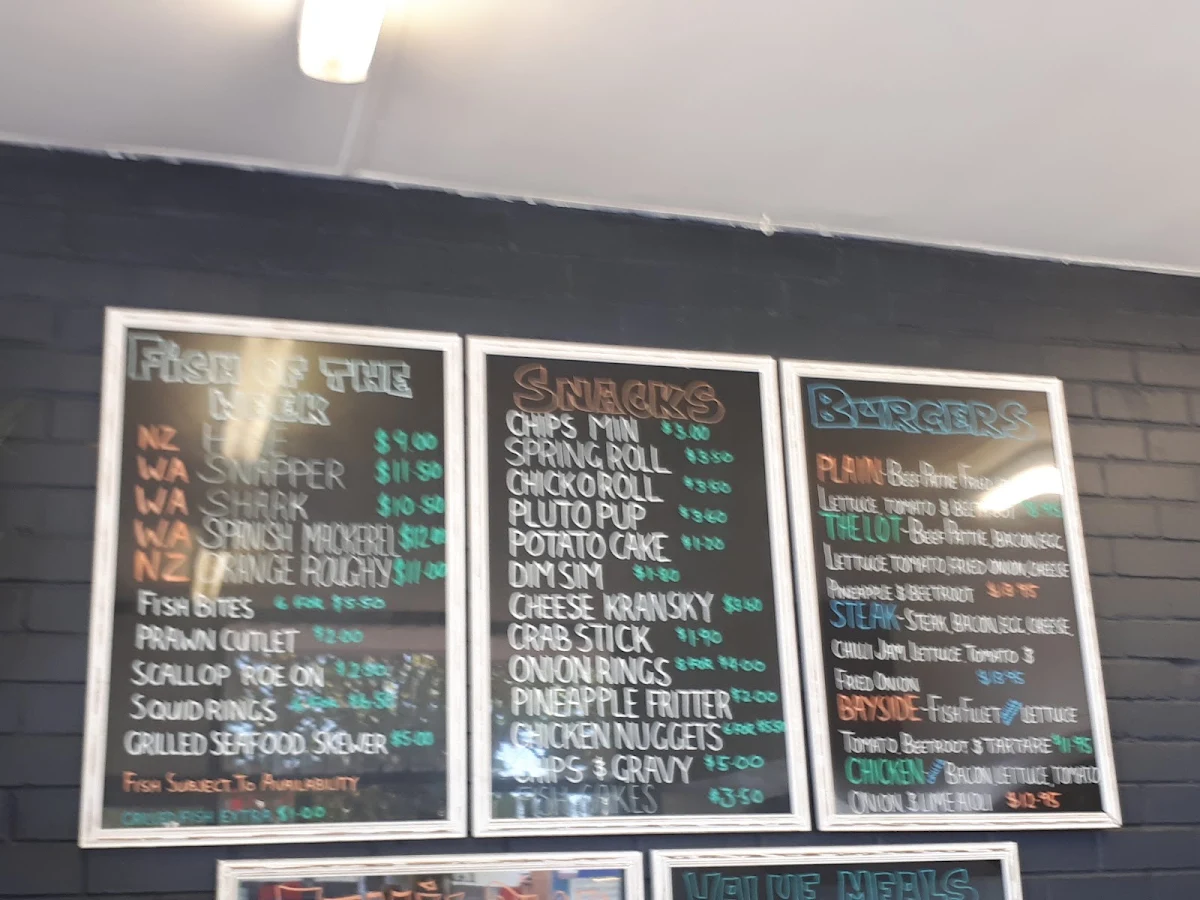 FISH OF THE
WEEK
NZ $9.00
WA SNAPPER $11.50
WA SHARK $10.50
WA SPANISH MACKEREL $12.00
NZ ORANGE ROUGHY $11.00
FISH BITES 6 FOR $5.50
PRAWN CUTLET $2.00
SCALLOP ROE ON
SQUID RINGS
GRILLED SEAFOOD SKEWER $5.00
FISH SUBJECT TO AVAILABILITY
GRILLED FISH EXTRA $1.00
SNACKS
CHIPS MIN $3.00
SPRING ROLL $3.50
CHICKO ROLL $3.50
PLUTO PUP $3.60
POTATO CAKE $1.20
DIM SIM
CHEESE KRANSKY $3.60
CRAB STICK $1.90
ONION RINGS 8 FOR $4.00
PINEAPPLE FRITTER $2.00
CHICKEN NUGGETS 6 FOR $5.50
CHIPS & GRAVY $5.00
FISH CAKES $3.50
BURGERS
PLAIN - BEEF PATTIE FRIED
LETTUCE, TOMATO & BEETROOT
THE LOT - BEEF PATTIE, BACON, EGG,
LETTUCE, TOMATO, FRIED ONION, CHEESE
PINEAPPLE & BEETROOT $13.95
STEAK - STEAK, BACON, EGG, CHEESE,
CHILLI JAM, LETTUCE, TOMATO &
FRIED ONION $13.95
BAYSIDE - FISH FILLET LETTUCE
TOMATO, BEETROOT & TARTARE $11.95
CHICKEN BACON, LETTUCE, TOMATO
ONION & LIME AIOLI $12.95
VALUE MEALS